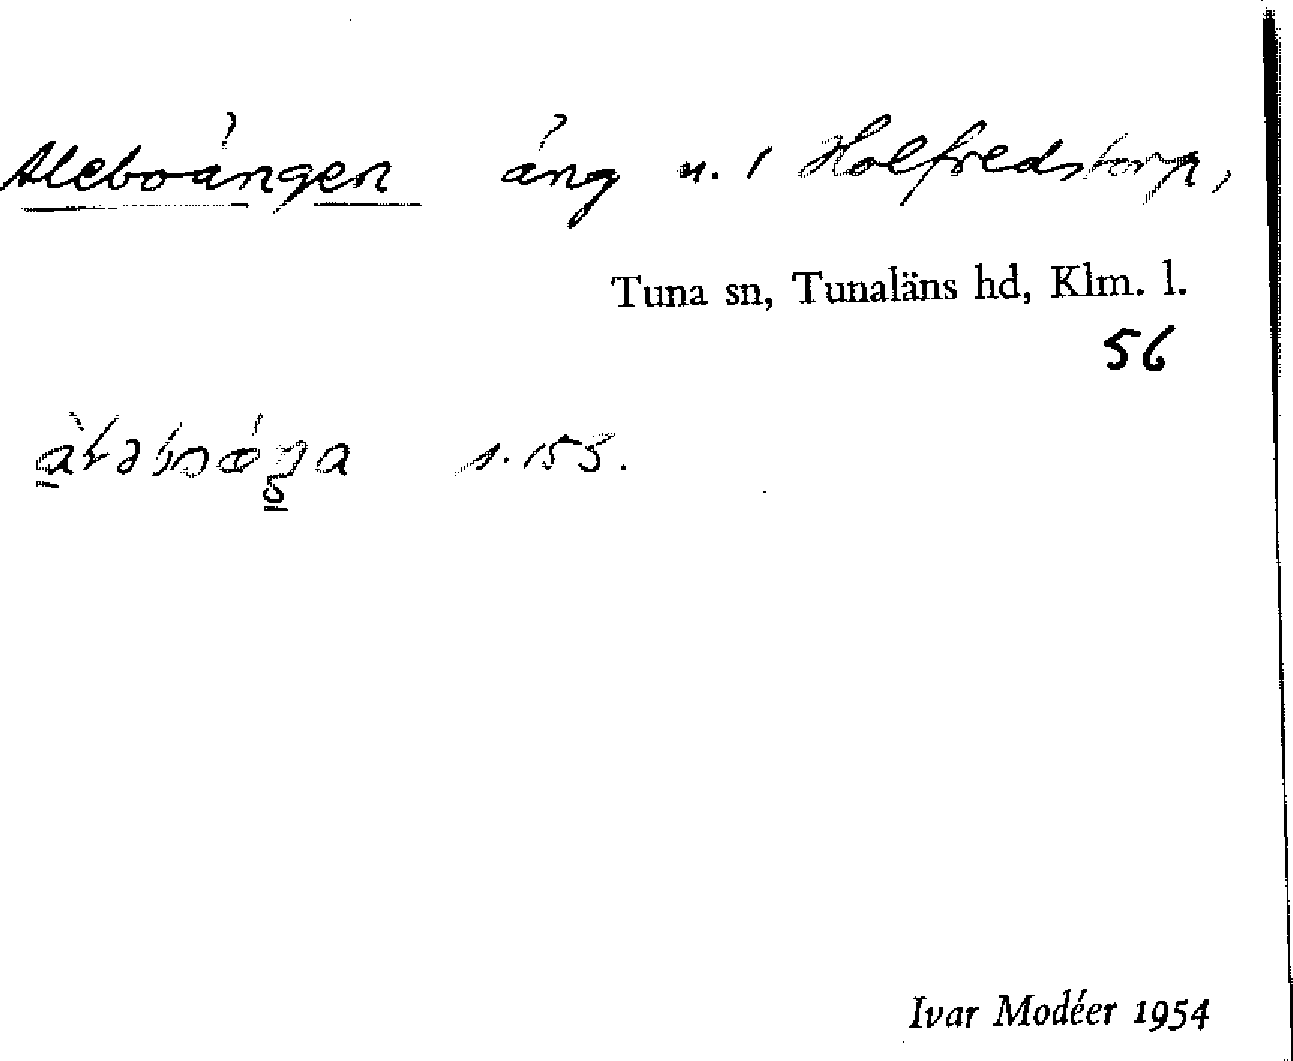 Aleboängen äng u. / Holfredstorp,
Tuna sn, Tunaläns hd, Klm. l.
56
s. 155.
Ivar Modéer 1954